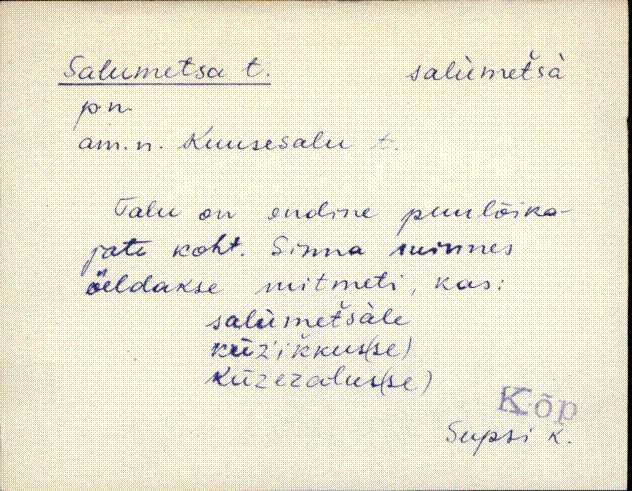 Salumetsa t. salùmetšà
p.n.
am.n. Kuusesalu t.
Talu on endine puulõika-
jate koht. Sinna minnes
öeldakse mitmeti, kas:
salùmetšàle
kūz'ikkus(se)
kūzezalus(se)
Kõp
Supsi k.